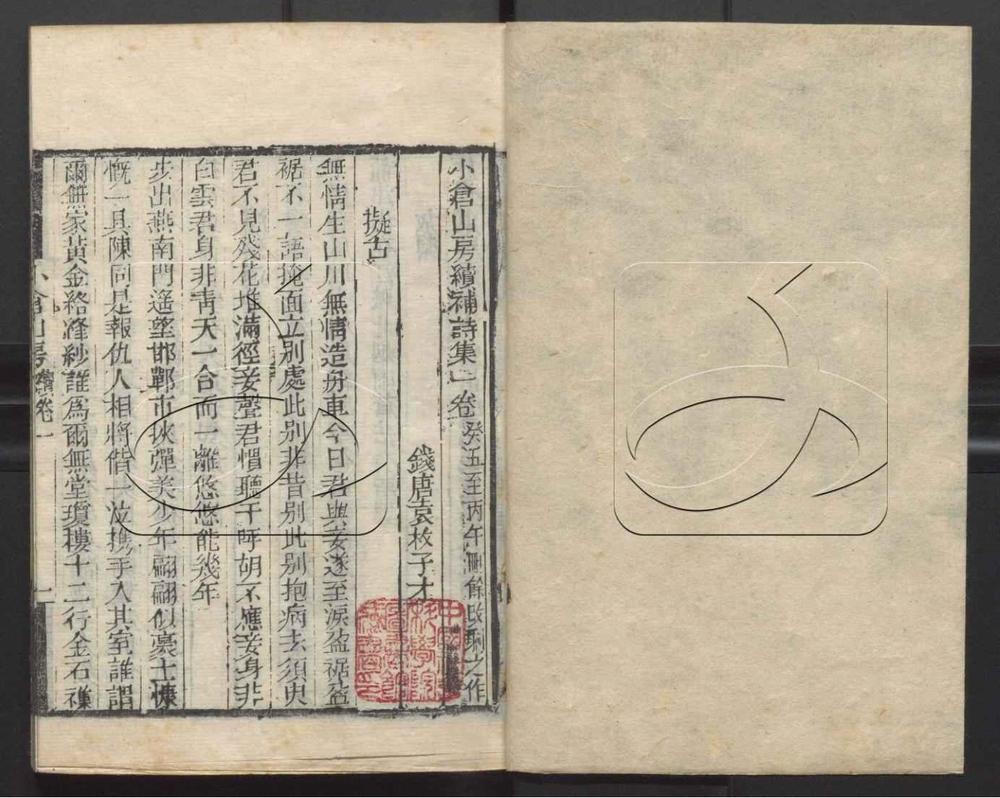 小倉山房續補詩集一卷癸丑至丙午刪餘改剩之作
錢唐袁枚子才
擬古
無情生山川無情造舟車今日君與妾遂至淚盈裾盈
裾不一語掩面立別處此別非昔別此別抱病去須臾
君不見殘花堆滿徑妾聲君慣聽千呼胡不應妾身非
白雲君身非靑天一合而一離悠悠能幾年
步出燕南門遙望邯鄲市挾彈美少年翩翩似豪士慷
慨一具陳同是報仇人相將偕一泣攜手入其室誰謂
爾無家黃金絡絳紗誰爲爾無堂瓊樓十二行金石雜
小倉山房續卷一
一